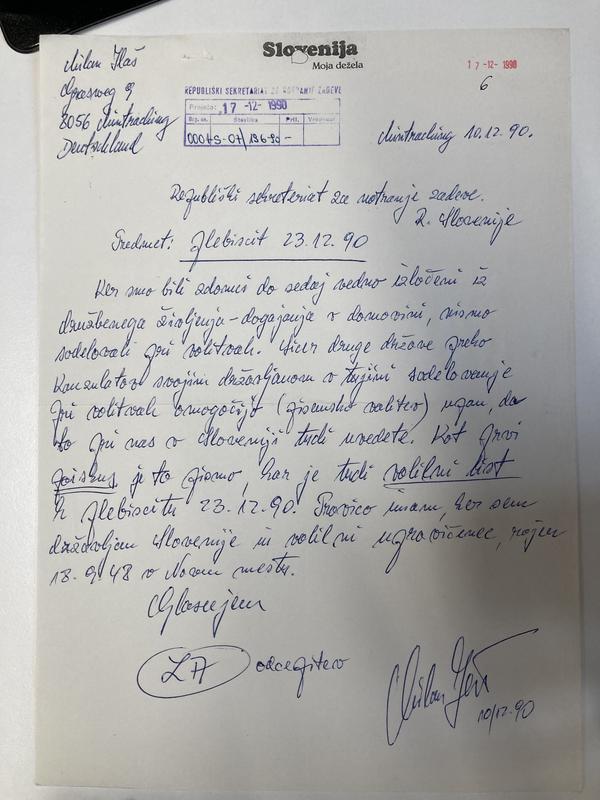 Slovenija
Moja dežela
17-12-1990
6
Milan
8056 Mintraching
Deutschland
REPUBLIŠKI SEKRETARIAT ZA NOTRANJE ZADEVE
Prejeto: 17-12-1990
Številka
Pril.
0004S-07/136-90 -
Mintraching 10.12.90.
Republiški sekretariat za notranje zadeve.
R. Slovenije
Predmet: Plebiscit 23.12.90
Ker smo bili zdomci do sedaj vedno izločeni iz
družbenega življenja - dogajanja v domovini, nismo
sodelovali pri volitvah. Sicer druge države preko
Konzulatov svojim državljanom v tujini sodelovanje
pri volitvah omogočijo (pismeno volitev) upam, da
bo pri nas v Sloveniji tudi uvedete. Kot prvi
poiskus je to pismo, kar je tudi volilni list
k plebiscitu 23.12.90. Pravico imam, ker sem
državljan Slovenije in volilni upravičenec, rojen
18.9.48 v Novem mestu.
Glasujem
ZA odcepitev
Milan
10/12.90